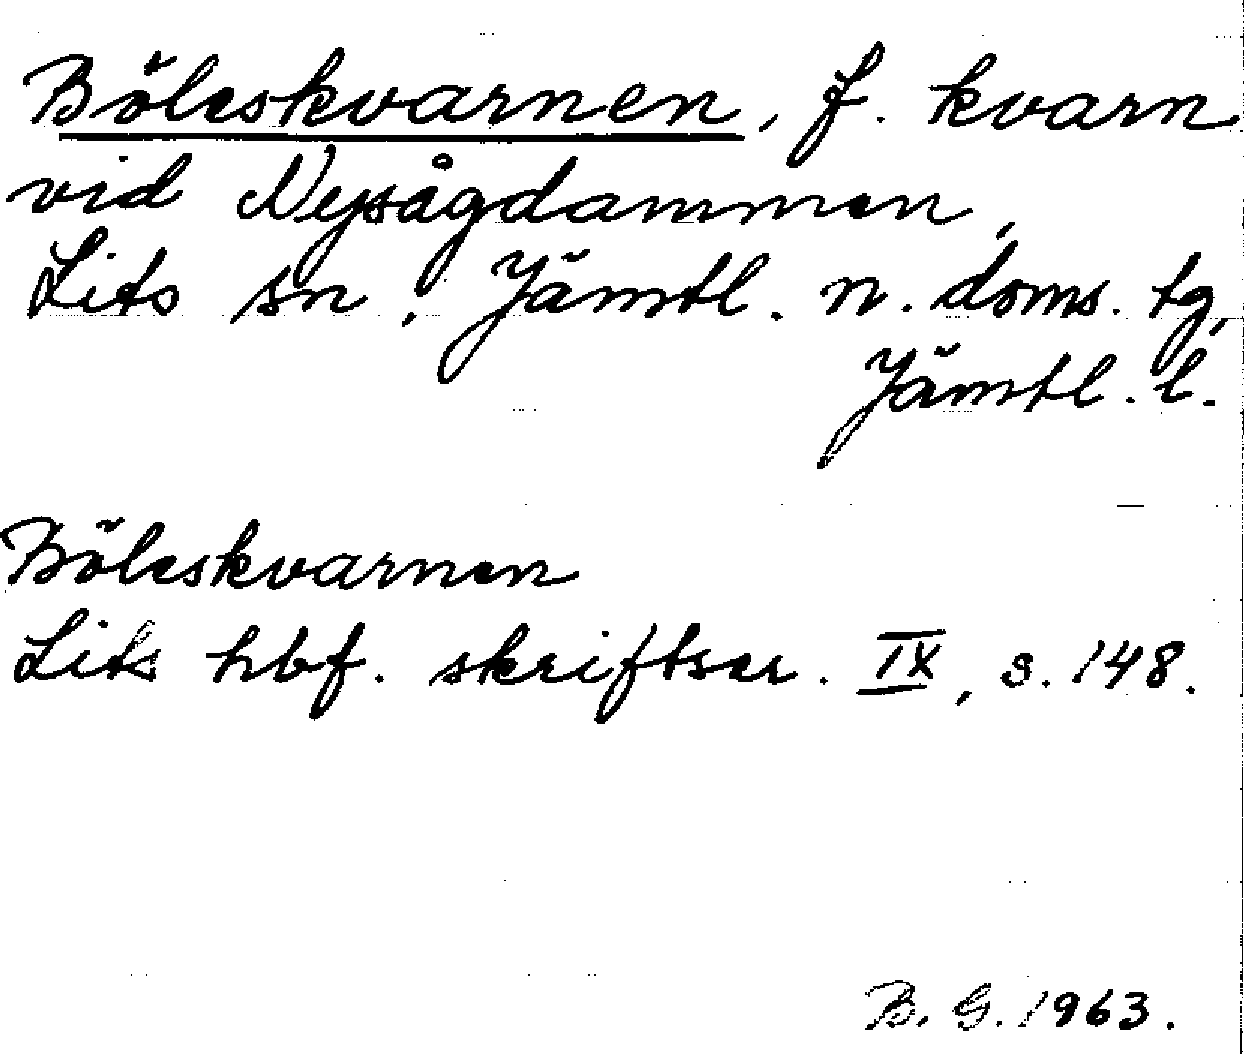 Böleskvarnen, f. kvarn
vid Nysågdammen,
Lits sn, Jämtl. n. doms. tg,
Jämtl. l.
Böleskvarnen
Lits hbf. skriftser. IX, s. 148.
B. G. 1963.